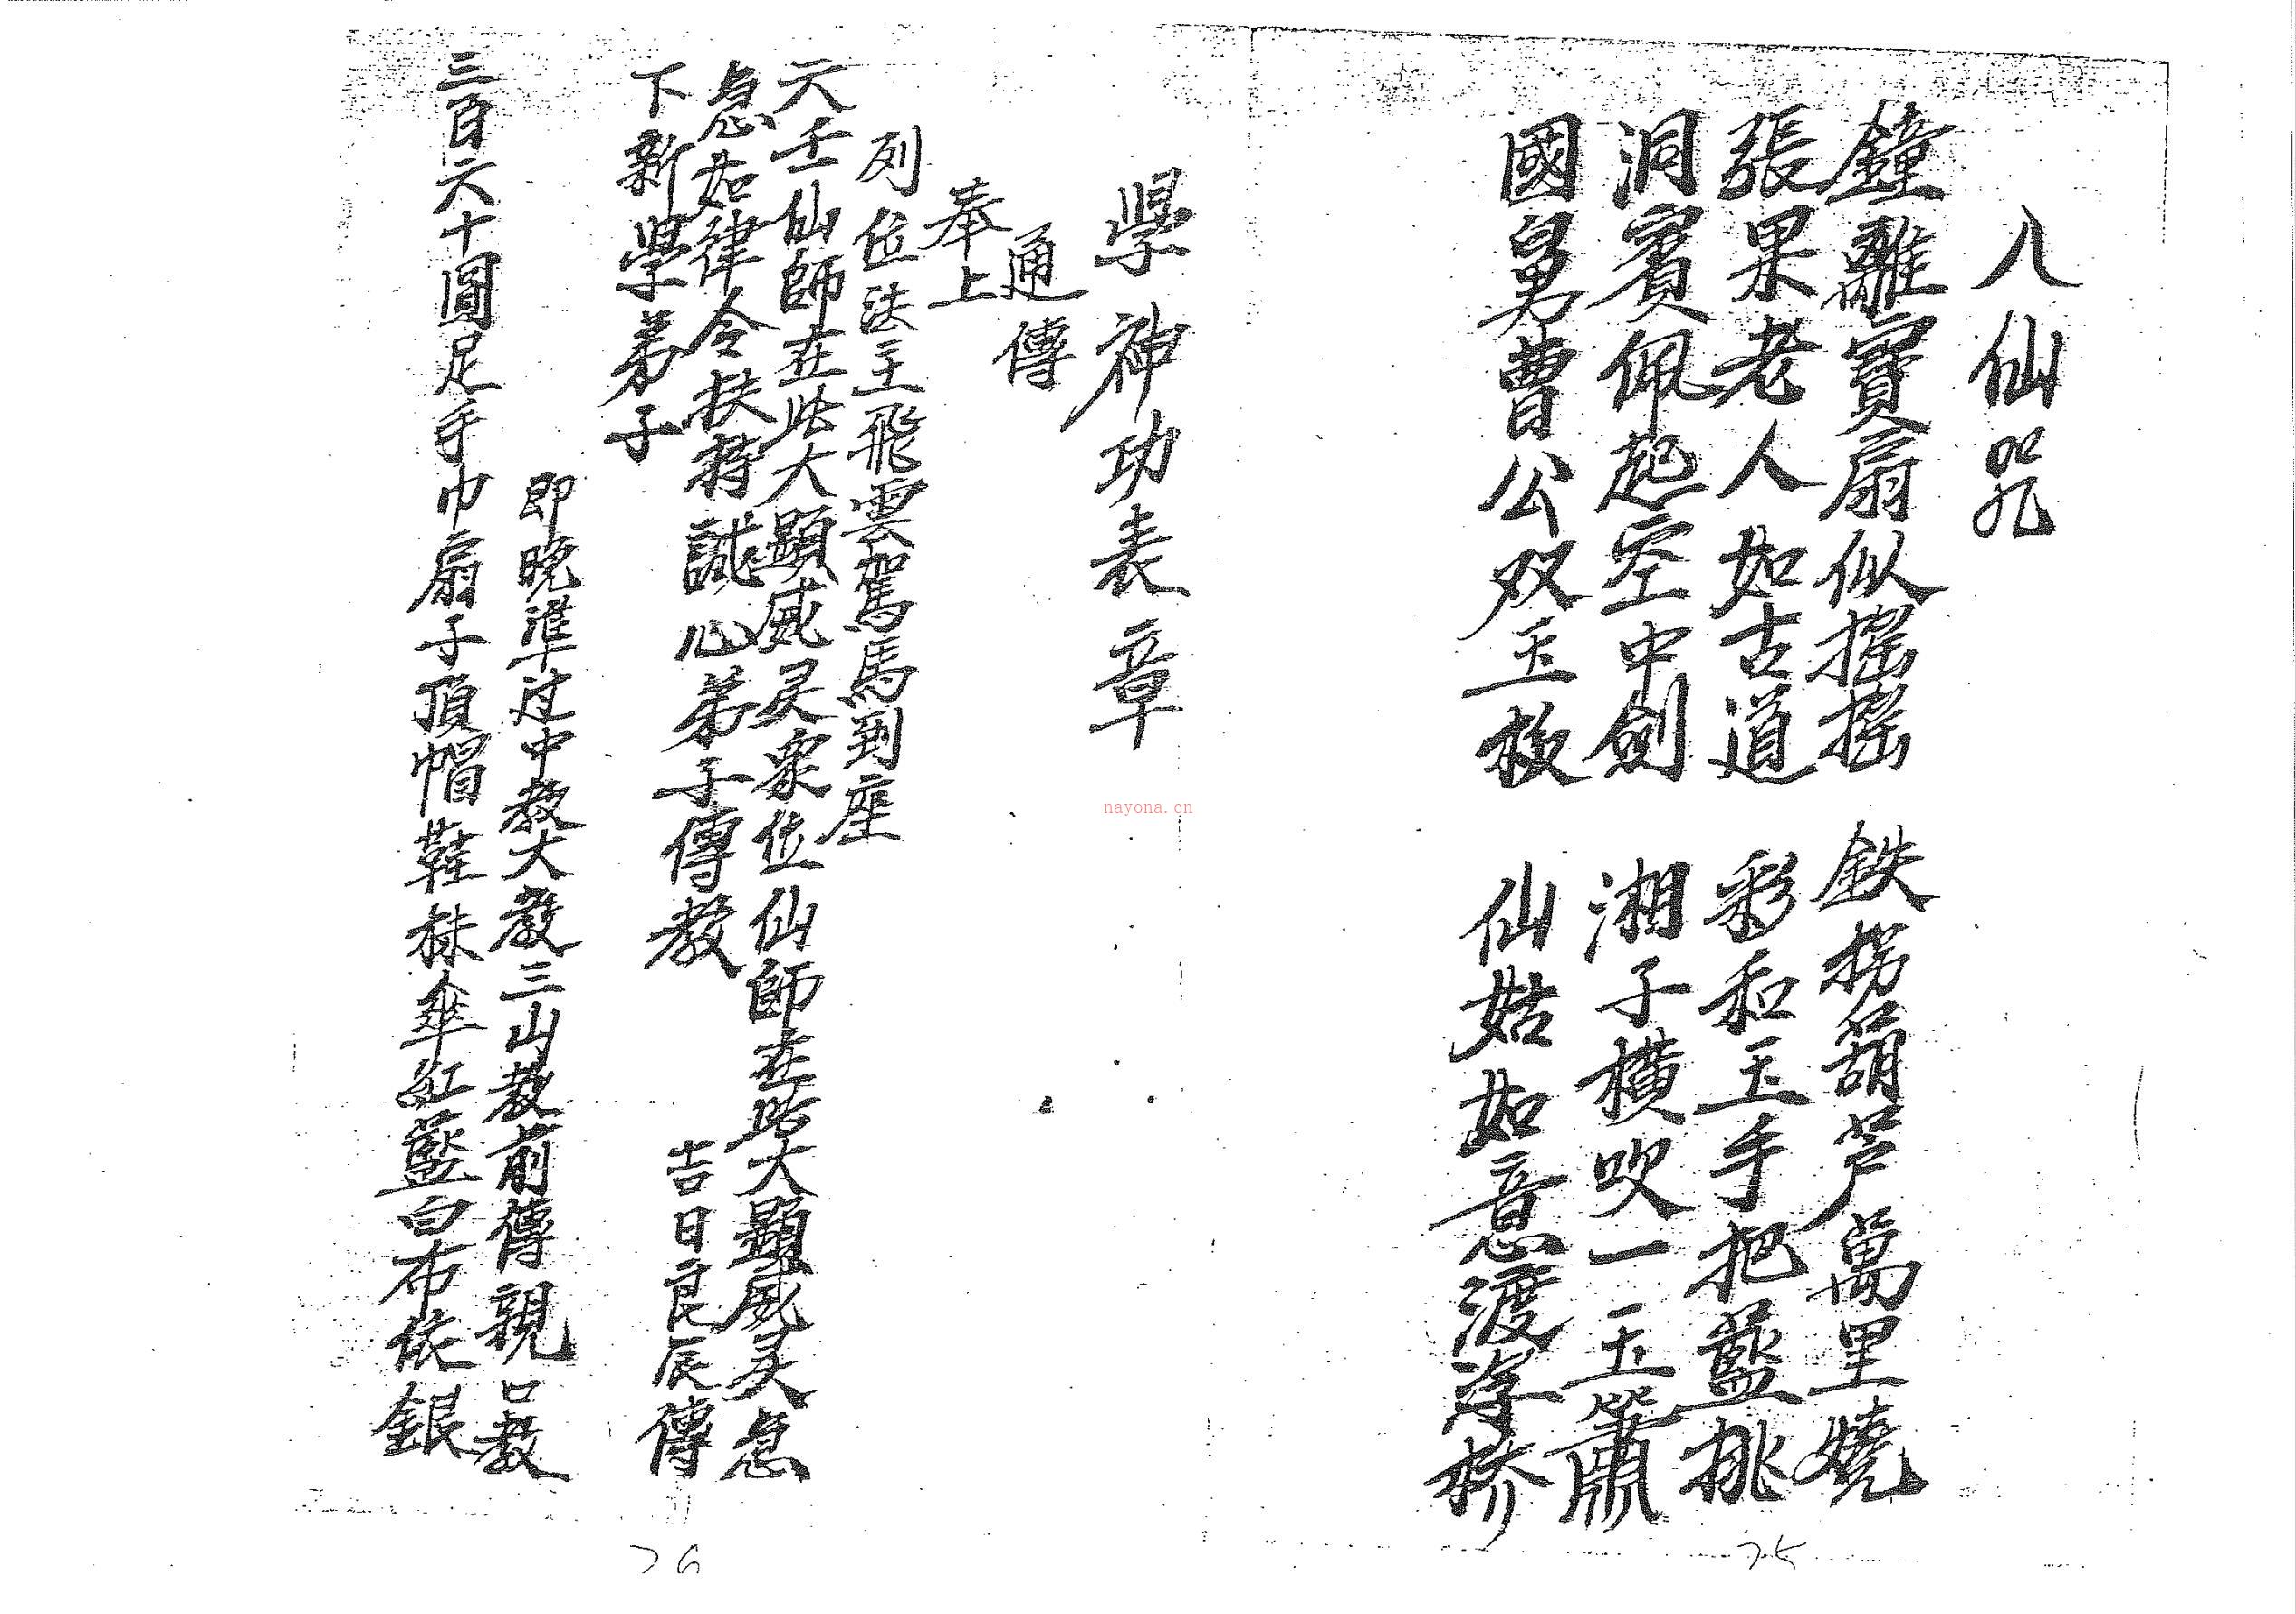 八仙咒
鐘離寶扇似搖搖　鉄拐葫芦萬里燒
張果老人如古道　彩和玉手把藍挑
洞賓佩起空中劍　湘子橫吹一玉簫
國舅曹公双玉板　仙姑如意渡浮橋
75
學神功表章
通傳
奉上
列位法主飛雲駕馬到座
六壬仙師在此大顯威灵衆位仙師在此大顯威灵急
急如律令扶持誠心弟子傳教　吉日良辰傳
下新學弟子
即晚準过中教大教三山教前傳親口教
三百六十圓足手巾扇子頂帽鞋襪傘紅藍白布依銀
76
nayona.cn